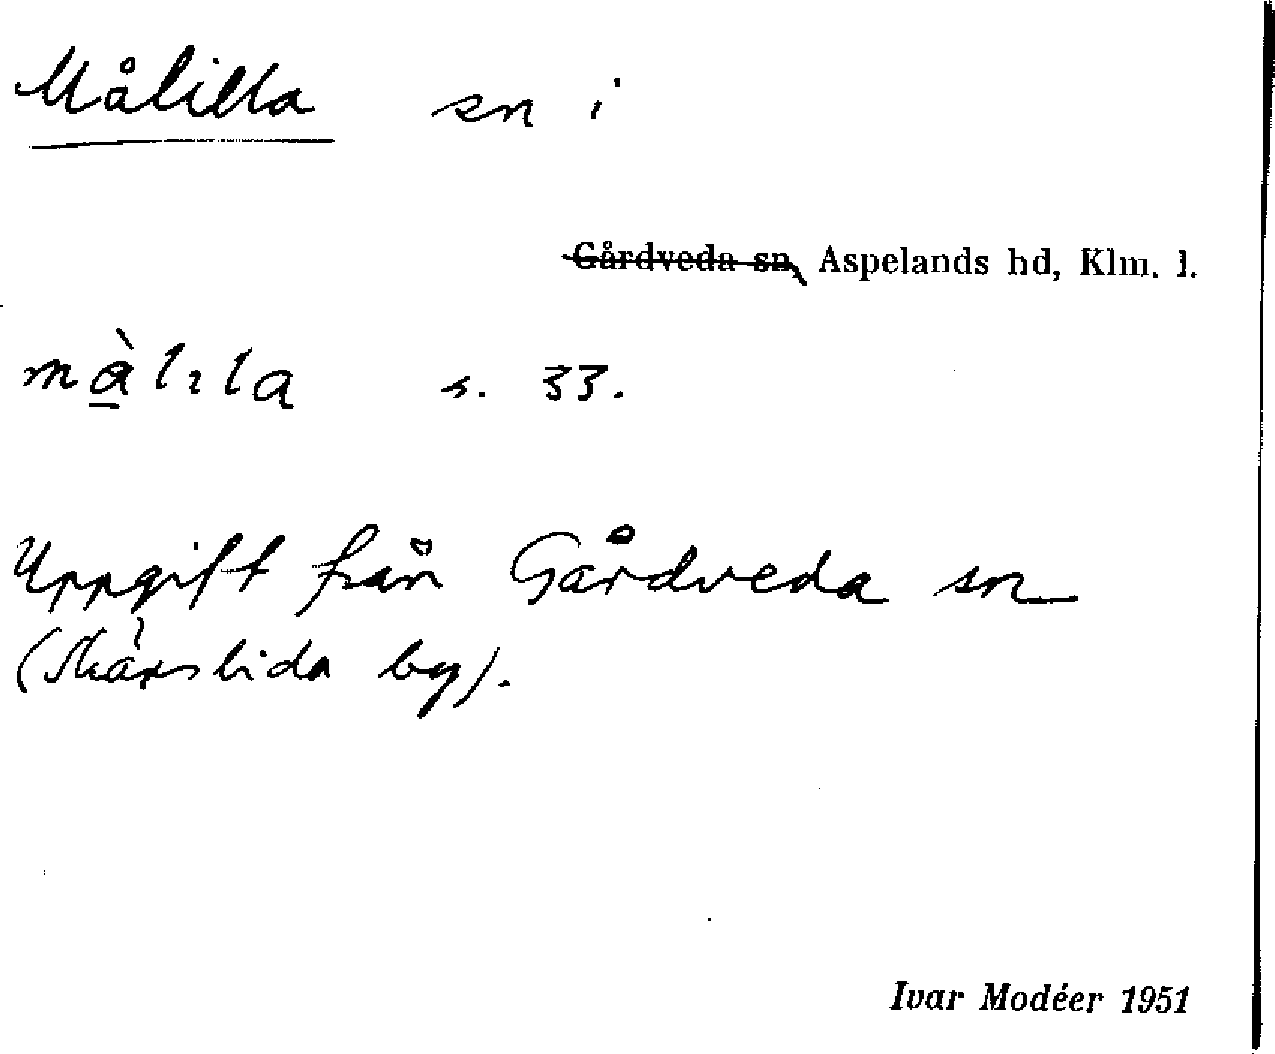 Målilla sn i
Gårdveda sn, Aspelands hd, Klm. l.
s. 33.
Uppgift från Gårdveda sn
by).
Ivar Modéer 1951